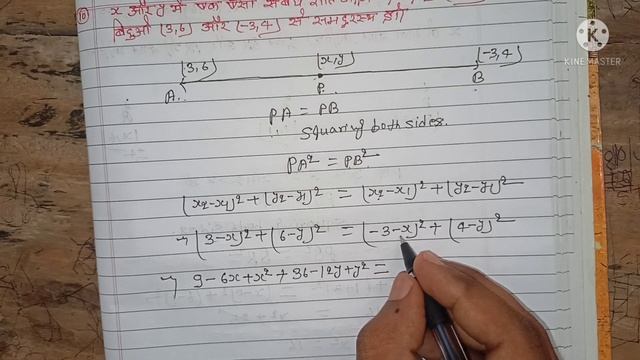 (10) x और y में एक ऐसा संबंध
बिंदुओं (3,6) और (-3,4) से समदूरस्थ हो।
KINEMASTER
(3,6) (x,y) (-3,4)
A. P. B
PA = PB
Squaring both sides.
PA² = PB²
(x₂-x₁)² + (y₂-y₁)² = (x₂-x₁)² + (y₂-y₁)²
→ (3-x)² + (6-y)² = (-3-x)² + (4-y)²
→ 9-6x+x²+36-12y+y² =